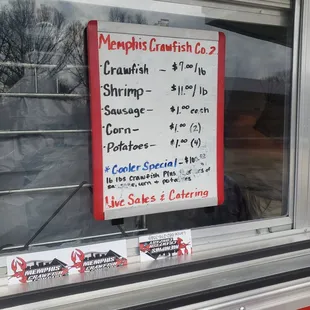 Memphis Crawfish Co. 2
· Crawfish — $7.00/lb
· Shrimp — $11.00/lb
· Sausage — $1.00 each
· Corn — $1.00 (2)
· Potatoes — $1.00 (4)
* Cooler Special -
16 lbs Crawfish Plus of
corn + potatoes
Live Sales & Catering
MEMPHIS
CRAWFISH